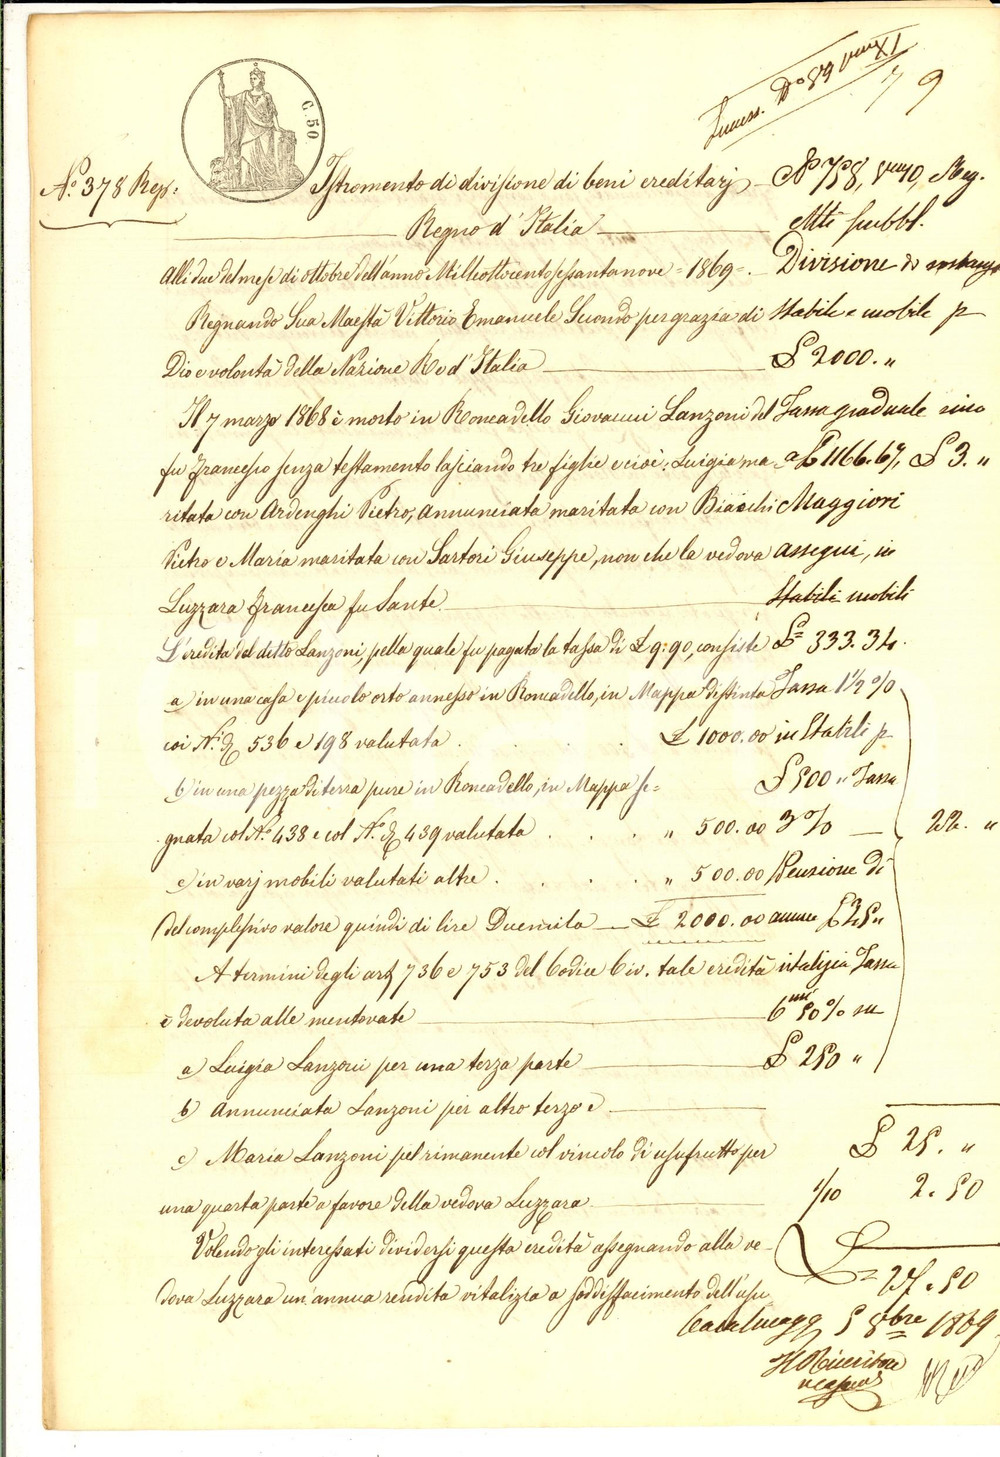 79
C. 50
N.o 378 Rep.
Istromento di divisione di beni ereditarj
Regno d'Italia
Alli due del mese di ottobre dell'anno Milleottocentosessantanove = 1869 =.
Regnando Sua Maestà Vittorio Emanuele Secondo per grazia di
Dio e volontà della Nazione Re d'Italia
Il 7 marzo 1868 è morto in Roncadello Giovanni Lanzoni del
fu Francesco senza testamento lasciando tre figlie e cioè: Luigia ma-
ritata con Ardenghi Pietro, Annunciata maritata con Bianchi
Pietro e Maria maritata con Sartori Giuseppe, non che la vedova
Luzzara Francesca fu Sante
L'eredità del detto Lanzoni, pella quale fu pagata la tassa di £ 9:90, consiste
a) in una casa e piccolo orto annesso in Roncadello, in Mappa distinta
coi N.i di 536 e 198 valutata . . . . £ 1000.00
b) in una pezza di terra pure in Roncadello, in Mappa se=
gnata col N.o 438 e col N.o di 439 valutata . . . " 500.00
c) in varj mobili valutati altre . . . . " 500.00
del complessivo valore quindi di lire Duemila £ 2000.00
A termini degli art. 736 e 753 del Codice Civ. tale eredità
è devoluta alle mentovate
a) Luigia Lanzoni per una terza parte
b) Annunciata Lanzoni per altro terzo e
c) Maria Lanzoni pel rimanente col vincolo di usufrutto per
una quarta parte a favore della vedova Luzzara
Volendo gli interessati dividersi questa eredità assegnando alla ve-
dova Luzzara un'annua rendita vitalizia a soddisfacimento dell'usu
N.o 758, Reg.
Atti pubbl.
Divisione di
stabile e mobile p
£ 2000. "
Tassa graduale sino
a £ 1166.67, £ 3. "
Maggiori
assegni, in
Stabili mobili
£ 333.34.
Tassa 1 1/2 %
in Stabili p
£ 500 " Tassa
3 % 22. "
Pensione di
annue £ 25 "
vitalizia Tassa
50 % su
£ 250 "
£ 25. "
1/10 2.50
£ 27.50
5 8bre 1869
Il Ricevitore